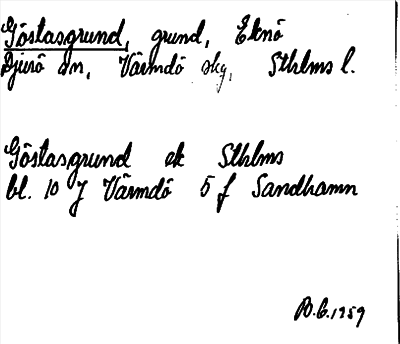 Göstasgrund, grund, Eknö
Djurö sn, Värmdö skg, Sthlms l.
Göstasgrund ek Sthlms
bl. 10 J Värmdö 5 f Sandhamn
B.G. 1959